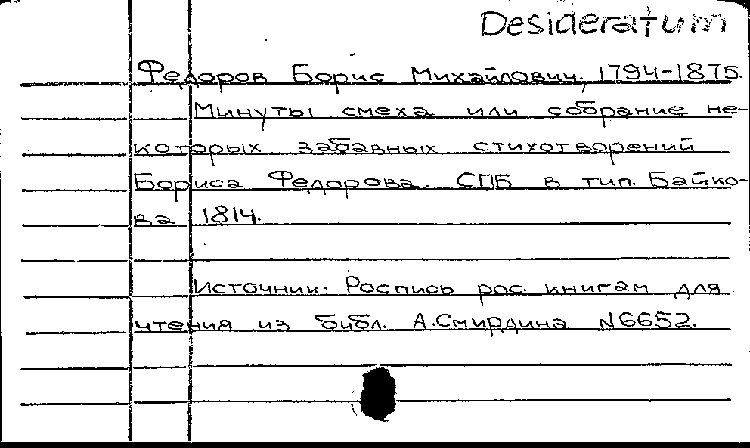 Desideratum
Федоров Борис Михайлович, 1794-1875.
Минуты смеха или собрание не-
которых забавных стихотворений
Бориса Федорова. СПБ в тип. Байко-
ва 1814.
Источник: Роспись рос. книгам для
чтения из библ. А.Смирдина N6652.